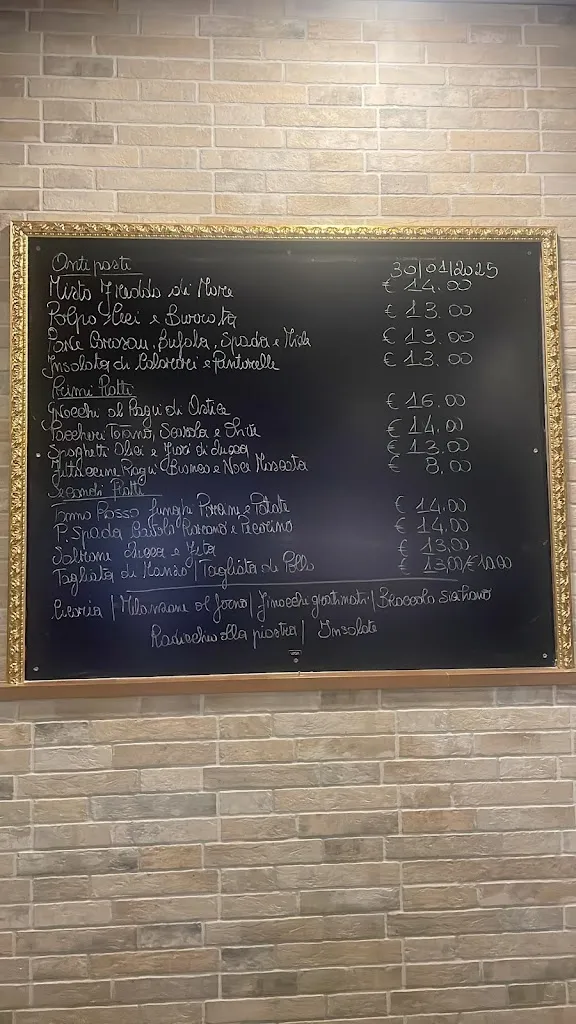 Antipasti
30/01/2025
Misto Freddo di Mare € 14.00
Polpo Ceci e Burrata € 13.00
Pane Carasau, Bufala, Spada e Miele € 13.00
Insalata di Calamari e Pantarelle € 13.00
Primi Piatti
Gnocchi al Ragù di Ostia € 16.00
Paccheri Tonno, Scarola e Olive € 14,00
Spaghetti Alici e Fiori di zucca € 13.00
Fettuccine Ragù Bianco e Noce Moscata € 8,00
Secondi Piatti
Tonno Rosso funghi Porcini e Patate € 14.00
P. Spada Carciofi e Pecorino € 14,00
Salmone Zucca e Feta € 13,00
Tagliata di Manzo | Tagliata di Pollo € 13,00/€10.00
Cicoria | Melanzane al forno | Finocchi gratinati | Broccolo Siciliano
Radicchio alla piastra | Insalate